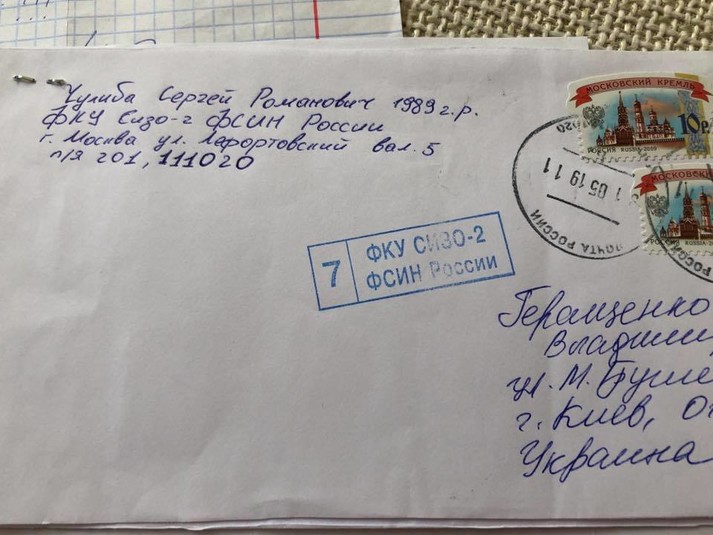 Чулиба Сергей Романович 1989 г.р.
ФКУ Сизо-2 ФСИН России
г. Москва ул. Лефортовский вал. 5
п/я 201, 111020
МОСКОВСКИЙ КРЕМЛЬ
10 р
РОССИЯ RUSSIA 2009
МОСКОВСКИЙ КРЕМЛЬ
РОССИЯ RUSSIA
05 19 11
ПОЧТА РОССИИ
7
ФКУ СИЗО-2
ФСИН России
Геращенко
Владими
ул. М.
г. Киев,
Украина